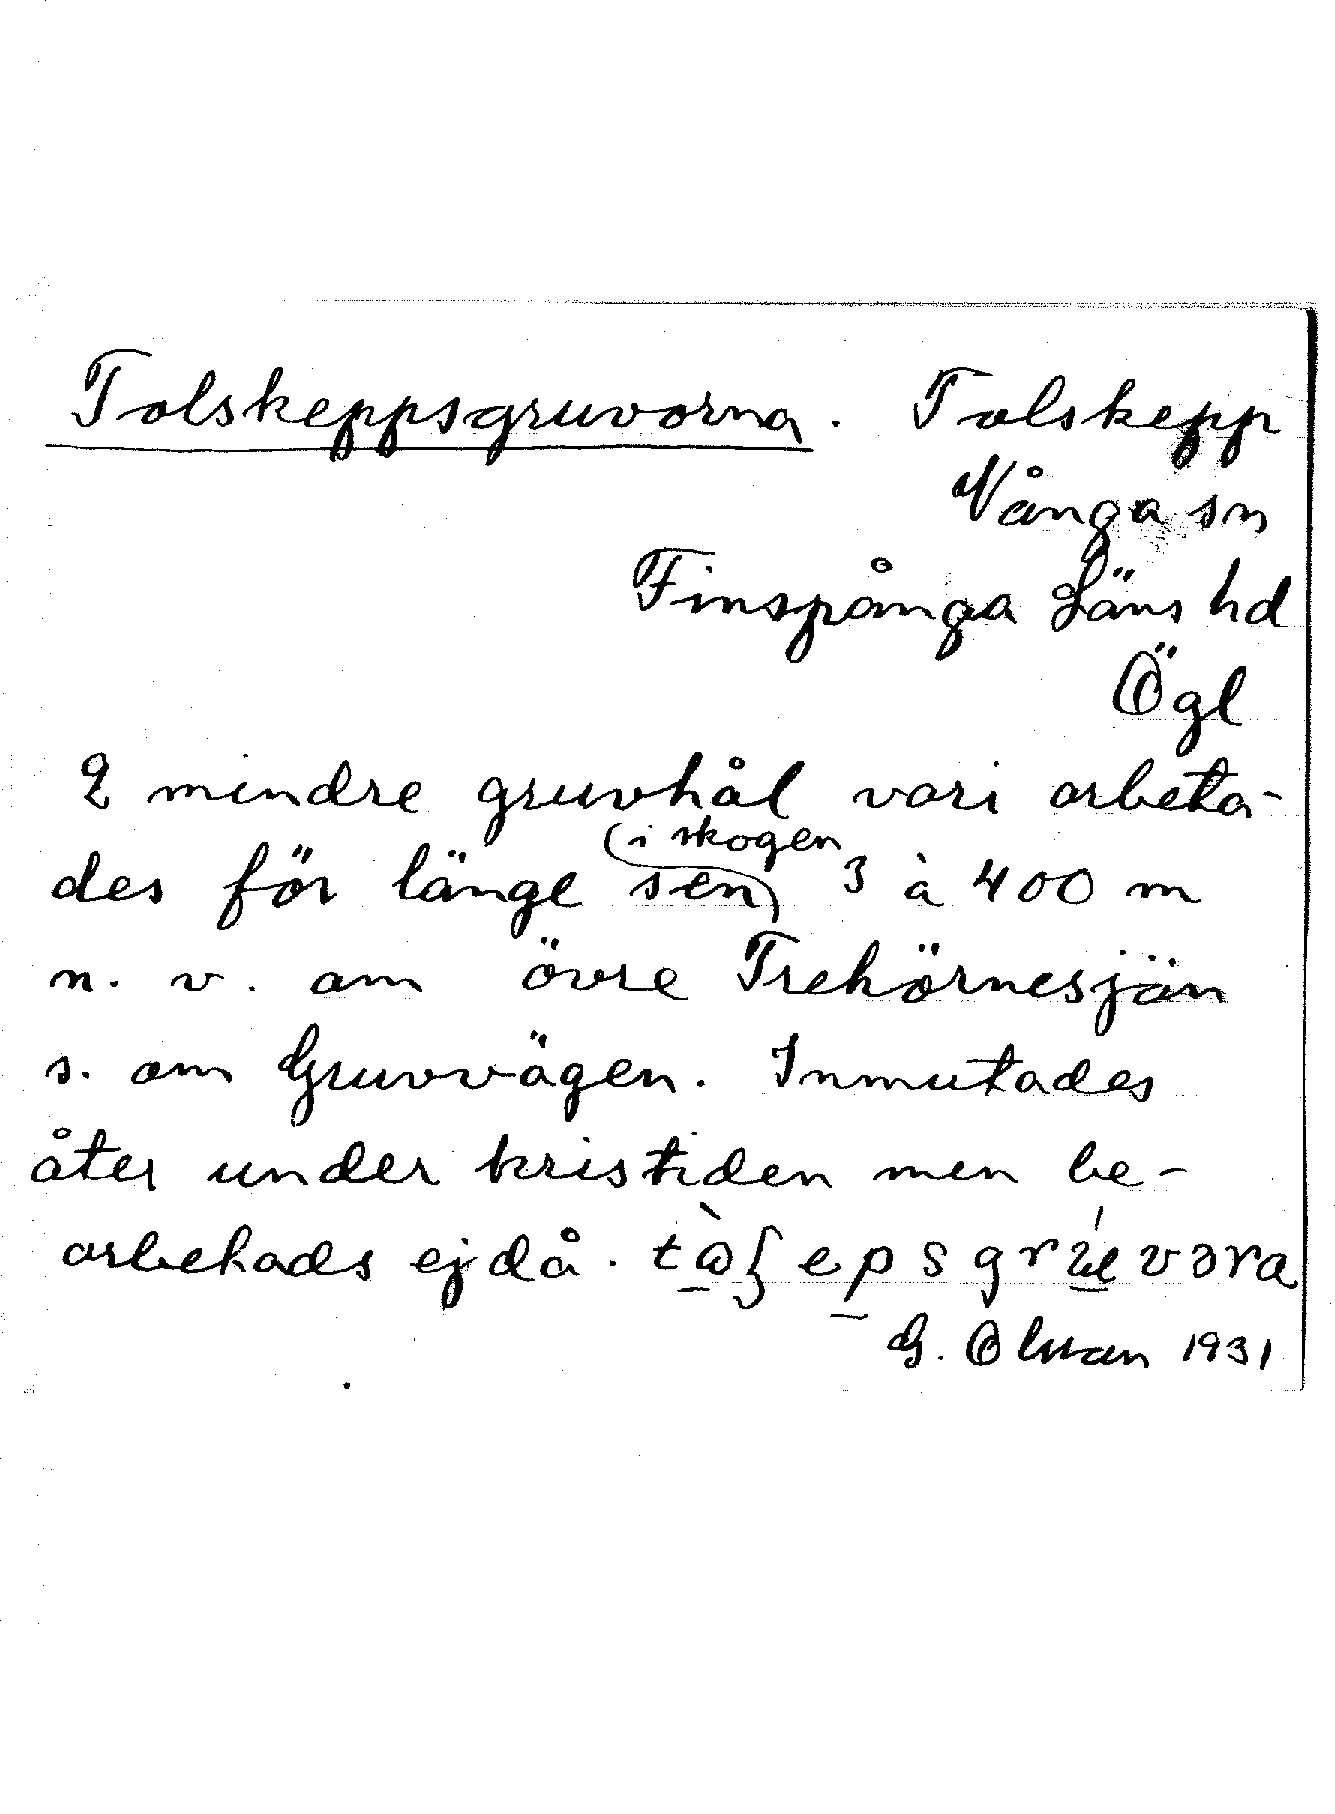 Tolskeppsgruvorna. Tolskepp
Vånga sn
Finspånga Läns hd
Ögl
2 mindre gruvhål vari arbeta-
des för länge sen i skogen 3 à 400 m
n. v. om övre Trehörnesjön
s. om Gruvvägen. Inmutades
åter under kristiden men be-
arbetades ej då.
G. Olsson 1931